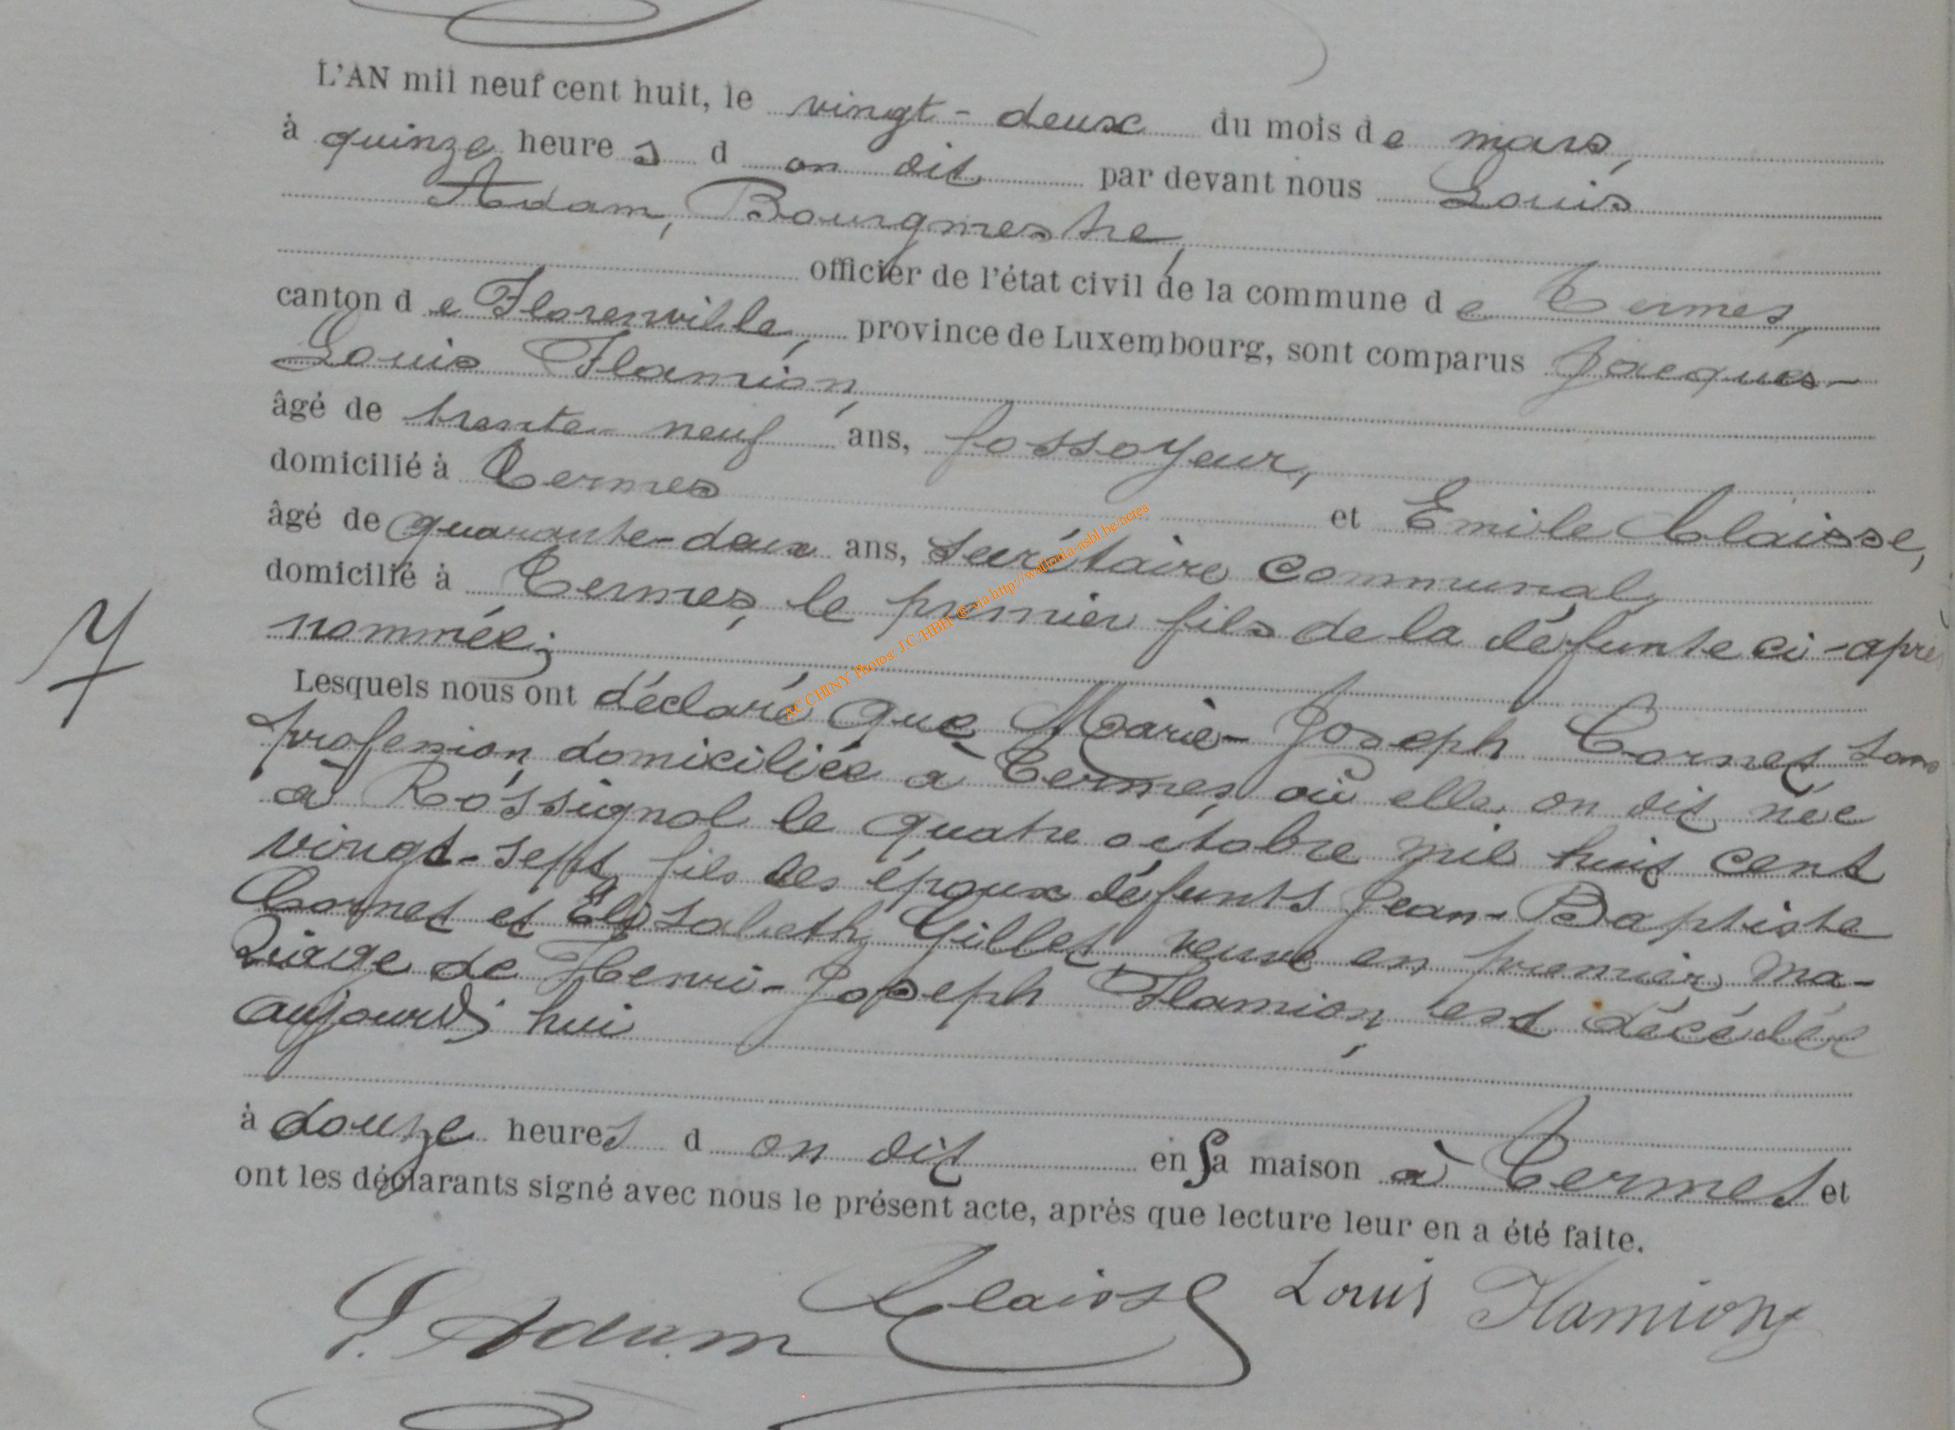 L'AN mil neuf cent huit, le vingt-deux du mois de mars,
à quinze heures d on dit par devant nous Louis
Adam, Bourgmestre,
officier de l'état civil de la commune de Termes,
canton de Florenville, province de Luxembourg, sont comparus Jacques-
Louis Flamion,
âgé de trente-neuf ans, fossoyeur,
domicilié à Termes et Emile Claisse,
âgé de quarante-deux ans, secrétaire communal,
domicilié à Termes, le premier fils de la défunte ci-après
nommée;
7
Lesquels nous ont déclaré que Marie-Joseph Cornet sans
profession, domiciliée à Termes où elle on dit née
à Rossignol le quatre octobre mil huit cent
vingt-sept, fils des époux défunts Jean-Baptiste
Cornet et Elisabeth Gillet, veuve en premier ma-
riage de Henri-Joseph Flamion, est décédée
aujourd'hui
à douze heures d on dit en sa maison à Termes et
ont les déclarants signé avec nous le présent acte, après que lecture leur en a été faite.
L. Adam Claisse Louis Flamion
AC CHINY Photos J.C. HBH © via http://wallonia-asbl.be/actes